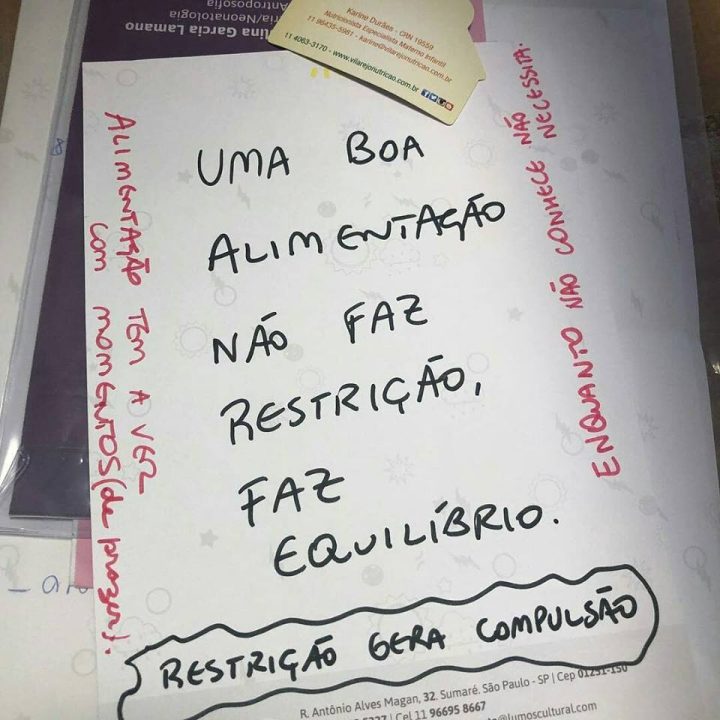 lina Garcia Lamano
ria/Neonatologia
Antroposofia
Karine Durães - CRN 19559
Nutricionista Especialista Materno Infantil
11 96435-5981 - karine@vilarejonutricao.com.br
11 4063-3170 - www.vilarejonutricao.com.br
UMA BOA
ALIMENTAÇÃO
NÃO FAZ
RESTRIÇÃO,
FAZ
EQUILÍBRIO.
RESTRIÇÃO GERA COMPULSÃO
ALIMENTAÇÃO TEM A VER
COM MOMENTOS (de prazer).
ENQUANTO NÃO CONHECE NÃO
NECESSITA.
R. Antônio Alves Magan, 32. Sumaré. São Paulo - SP | Cep 01251-150
5227 | Cel 11 96695 8667
@lumoscultural.com